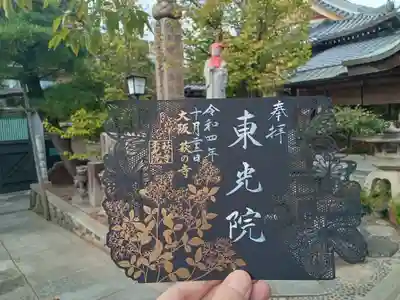 奉拝
東光院
令和四年
十月二十三日
大阪 萩の寺